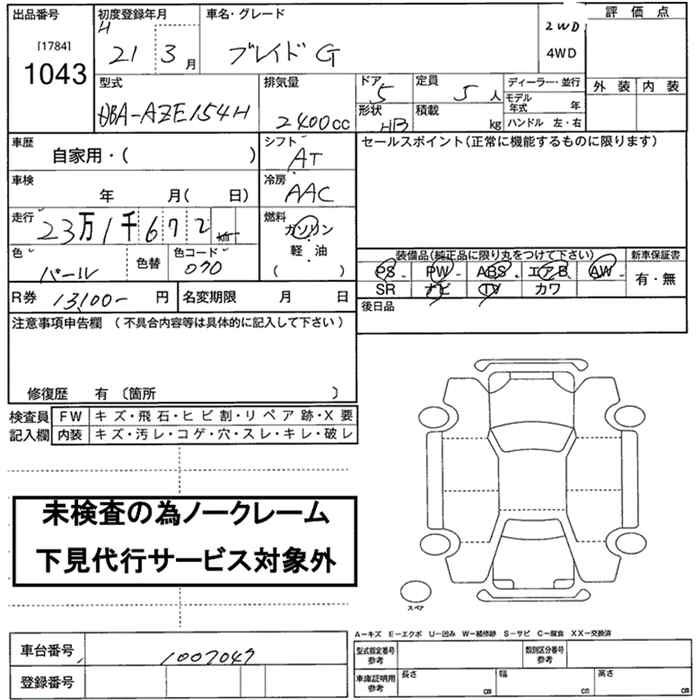 出品番号 初度登録年月 車名・グレード 2WD 評価点
[1784] H 21 3月 ブレイド G 4WD
1043
型式 排気量 ドア 5 定員 5人 ディーラー・並行 外装 内装
DBA-AZE154H 2400cc 形状 HB 積載 kg モデル年式 年
ハンドル 左・右
車歴 シフト セールスポイント(正常に機能するものに限ります)
自家用・( ) AT
車検 冷房
年 月( 日) AAC
走行 燃料
23万1千672km ガソリン
色 色コード 軽・油 装備品(純正品に限り丸をつけて下さい) 新車保証書
パール 色替 070 ( ) PS PW ABS エアB AW 有・無
R券 13,100- 円 名変期限 月 日 SR ナビ TV カワ
注意事項申告欄(不具合内容等は具体的に記入して下さい) 後日品
修復歴 有 〔箇所 〕
検査員 FW キズ・飛石・ヒビ割・リペア跡・X要
記入欄 内装 キズ・汚レ・コゲ・穴・スレ・キレ・破レ
未検査の為ノークレーム
下見代行サービス対象外
スペア
A-キズ E-エクボ U-凹み W-補修跡 S-サビ C-腐食 XX-交換済
車台番号 1007047 型式指定番号 参考 類別区分番号 参考
登録番号 車庫証明用 参考 長さ cm 幅 cm 高さ cm